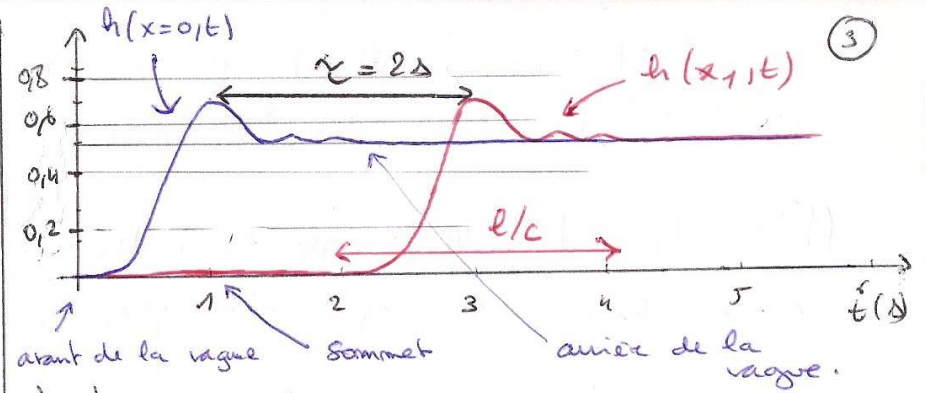 h(x=0,t)
3
τ = 2s
h(x₁,t)
0,8
0,6
0,4
0,2
l/c
1 2 3 4 5 6
t(s)
avant de la vague
sommet
arrière de la
vague.